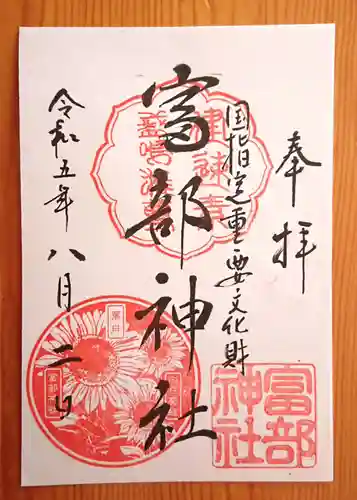 奉拝
国指定重要文化財
富部神社
令和五年八月二日
富部
神社
葉月